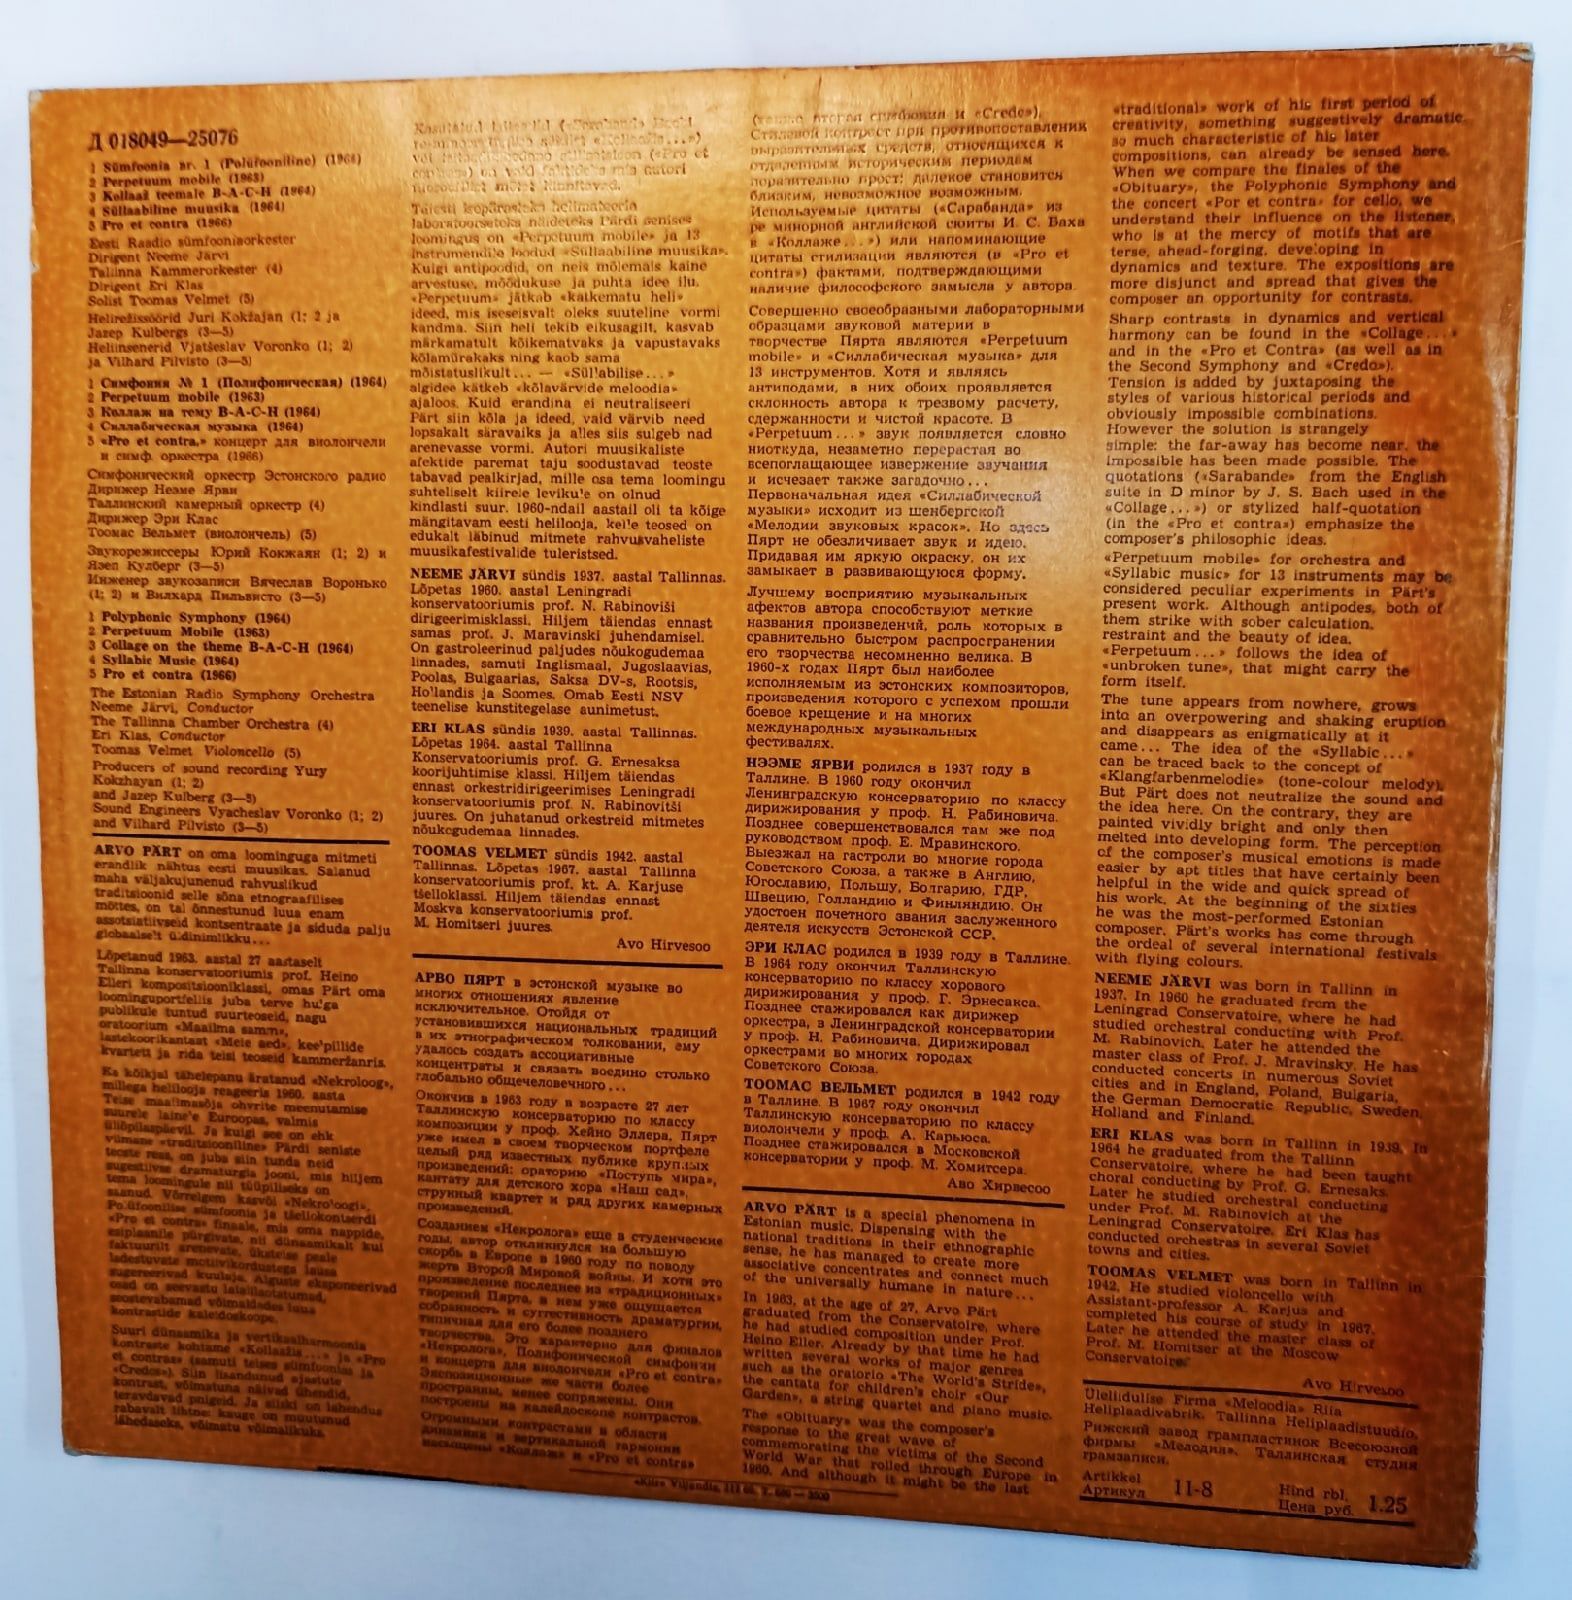 Д 018049—25076
1 Sümfoonia nr. 1 (Polüfooniline) (1964)
2 Perpetuum mobile (1963)
3 Kollaaž teemale B-A-C-H (1964)
4 Süllaabiline muusika (1964)
5 Pro et contra (1966)
Eesti Raadio sümfooniaorkester
Dirigent Neeme Järvi
Tallinna Kammerorkester (4)
Dirigent Eri Klas
Solist Toomas Velmet (5)
Helirežissöörid Juri Kokžajan (1; 2 ja
Jazep Kulbergs (3—5)
Heliinsenerid Vjatšeslav Voronko (1; 2)
ja Vilhard Pilvisto (3—5)
1 Симфония № 1 (Полифоническая) (1964)
2 Perpetuum mobile (1963)
3 Коллаж на тему B-A-C-H (1964)
4 Силлабическая музыка (1964)
5 «Pro et contra,» концерт для виолончели
и симф. оркестра (1966)
Симфонический оркестр Эстонского радио
Дирижер Неэме Ярви
Таллинский камерный оркестр (4)
Дирижер Эри Клас
Тоомас Вельмет (виолончель) (5)
Звукорежиссеры Юрий Кокжаян (1; 2) и
Язеп Кулберг (3—5)
Инженер звукозаписи Вячеслав Воронько
(1; 2) и Вилхард Пильвисто (3—5)
1 Polyphonic Symphony (1964)
2 Perpetuum Mobile (1963)
3 Collage on the theme B-A-C-H (1964)
4 Syllabic Music (1964)
5 Pro et contra (1966)
The Estonian Radio Symphony Orchestra
Neeme Järvi, Conductor
The Tallinna Chamber Orchestra (4)
Eri Klas, Conductor
Toomas Velmet Violoncello (5)
Producers of sound recording Yury
Kokzhayan (1; 2)
and Jazep Kulberg (3—5)
Sound Engineers Vyacheslav Voronko (1; 2)
and Vilhard Pilvisto (3—5)
ARVO PÄRT on oma loominguga mitmeti
erandlik nähtus eesti muusikas. Salanud
maha väljakujunenud rahvuslikud
traditsioonid selle sõna etnograafilises
mõttes, on tal õnnestunud luua enam
assotsiatiivseid kontsentraate ja siduda palju
globaalselt üldinimlikku...
Lõpetanud 1963. aastal 27 aastaselt
Tallinna konservatooriumis prof. Heino
Elleri kompositsiooniklassi, omas Pärt oma
loominguportfellis juba terve hulga
publikule tuntud suurteoseid, nagu
oratoorium «Maailma samm»,
lastekoorikantaat «Meie aed», keelpillide
kvartett ja rida teisi teoseid kammeržanris.
Ka kõikjal tähelepanu äratanud «Nekroloog»,
millega helilooja reageeris 1960. aasta
Teise maailmasõja ohvrite meenutamise
suurele lainele Euroopas, valmis
üliõpilaspäevil. Ja kuigi see on ehk
viimane «traditsiooniline» Pärdi seniste
teoste reas, on juba siin tunda neid
sugestiivse dramaturgia jooni, mis hiljem
tema loomingule nii tüüpiliseks on
saanud. Võrrelgem kasvõi «Nekroloogi»,
Polüfoonilise sümfoonia ja tšellokontserdi
«Pro et contra» finaale, mis oma nappide,
esiplaanile pürgivate, nii dünaamikalt kui
faktuurilt arenevate, üksteise peale
ladestuvate motiivikordustega lausa
sugereerivad kuulaja. Alguste eksponeerivad
osad on seevastu laialilaotatumad,
soostevabamad võimaldades luua
kontrastide kaleidoskoope.
Suuri dünaamika ja vertikaalharmoonia
kontraste kohtame «Kollaažis...» ja «Pro
et contras» (samuti teises sümfoonias ja
«Credos»). Siin lisandunud ajastute
kontrast, võimatuna näivad ühendid,
teravdavad pingeid. Ja siiski on lahendus
rabavalt lihtne: kauge on muutunud
lähedaseks, võimatu võimalikuks.
Kasutatud tsitaadid («Sarabande» Bachi
või tsitaadilähedane stilisatsioon («Pro et
contras») on vaid faktideks mis autori
filosoofilist mõtet kinnitavad.
Täiesti isepärasteks helimateeria
laboratoorseteks näideteks Pärdi senises
loomingus on «Perpetuum mobile» ja 13
instrumendile loodud «Süllaabiline muusika».
Kuigi antipoodid, on neis mõlemais kaine
arvestuse, mõõdukuse ja puhta idee ilu.
«Perpetuum» jätkab «katkematu heli»
ideed, mis iseseisvalt oleks suuteline vormi
kandma. Siin heli tekib eikusagilt, kasvab
märkamatult kõikematvaks ja vapustavaks
kõlamürakaks ning kaob sama
mõistatuslikult... — «Süllabilise...»
algidee kätkeb «kõlavärvide meloodia»
ajaloos. Kuid erandina ei neutraliseeri
Pärt siin kõla ja ideed, vaid värvib need
lopsakalt säravaiks ja alles siis sulgeb nad
arenevasse vormi. Autori muusikaliste
afektide paremat taju soodustavad teoste
tabavad pealkirjad, mille osa tema loomingu
suhteliselt kiirele levikule on olnud
kindlasti suur. 1960-ndail aastail oli ta kõige
mängitavam eesti helilooja, kelle teosed on
edukalt läbinud mitmete rahvusvaheliste
muusikafestivalide tuleristsed.
NEEME JÄRVI sündis 1937. aastal Tallinnas.
Lõpetas 1960. aastal Leningradi
konservatooriumis prof. N. Rabinoviši
dirigeerimisklassi. Hiljem täiendas ennast
samas prof. J. Maravinski juhendamisel.
On gastroleerinud paljudes nõukogudemaa
linnades, samuti Inglismaal, Jugoslaavias,
Poolas, Bulgaarias, Saksa DV-s, Rootsis,
Hollandis ja Soomes. Omab Eesti NSV
teenelise kunstitegelase aunimetust.
ERI KLAS sündis 1939. aastal Tallinnas.
Lõpetas 1964. aastal Tallinna
Konservatooriumis prof. G. Ernesaksa
koorijuhtimise klassi. Hiljem täiendas
ennast orkestridirigeerimises Leningradi
konservatooriumis prof. N. Rabinovitši
juures. On juhatanud orkestreid mitmetes
nõukogudemaa linnades.
TOOMAS VELMET sündis 1942. aastal
Tallinnas. Lõpetas 1967. aastal Tallinna
konservatooriumis prof. kt. A. Karjuse
tšelloklassi. Hiljem täiendas ennast
Moskva konservatooriumis prof.
M. Homitseri juures.
Avo Hirvesoo
АРВО ПЯРТ в эстонской музыке во
многих отношениях явление
исключительное. Отойдя от
установившихся национальных традиций
в их этнографическом толковании, ему
удалось создать ассоциативные
концентраты и связать воедино столько
глобально общечеловечного...
Окончив в 1963 году в возрасте 27 лет
Таллинскую консерваторию по классу
композиции у проф. Хейно Эллера, Пярт
уже имел в своем творческом портфеле
целый ряд известных публике крупных
произведений: ораторию «Поступь мира»,
кантату для детского хора «Наш сад»,
струнный квартет и ряд других камерных
произведений.
Созданием «Некролога» еще в студенческие
годы, автор откликнулся на большую
скорбь в Европе в 1960 году по поводу
жертв Второй Мировой войны. И хотя это
произведение последнее из «традиционных»
творений Пярта, в нем уже ощущается
собранность и суггестивность драматургии,
типичная для его более позднего
творчества. Это характерно для финалов
«Некролога», Полифонической симфонии
и концерта для виолончели «Pro et contra»
Экспозиционные же части более
пространны, менее сопряжены. Они
построены на калейдоскопе контрастов.
Огромными контрастами в области
динамики и вертикальной гармонии
насыщены «Коллаж» и «Pro et contra»
(также вторая симфония и «Credo»).
Стилевой контраст при противопоставлении
выразительных средств, относящихся к
отдаленным историческим периодам
поразительно прост: далекое становится
близким, невозможное возможным.
Используемые цитаты («Сарабанда» из
ре минорной английской сюиты И. С. Баха
в «Коллаже...») или напоминающие
цитаты стилизации являются (в «Pro et
contra») фактами, подтверждающими
наличие философского замысла у автора.
Совершенно своеобразными лабораторными
образцами звуковой материи в
творчестве Пярта являются «Perpetuum
mobile» и «Силлабическая музыка» для
13 инструментов. Хотя и являясь
антиподами, в них обоих проявляется
склонность автора к трезвому расчету,
сдержанности и чистой красоте. В
«Perpetuum...» звук появляется словно
ниоткуда, незаметно перерастая во
всепоглощающее извержение звучания
и исчезает также загадочно...
Первоначальная идея «Силлабической
музыки» исходит из шенбергской
«Мелодии звуковых красок». Но здесь
Пярт не обезличивает звук и идею.
Придавая им яркую окраску, он их
замыкает в развивающуюся форму.
Лучшему восприятию музыкальных
афектов автора способствуют меткие
названия произведений, роль которых в
сравнительно быстром распространении
его творчества несомненно велика. В
1960-х годах Пярт был наиболее
исполняемым из эстонских композиторов,
произведения которого с успехом прошли
боевое крещение и на многих
международных музыкальных
фестивалях.
НЭЭМЕ ЯРВИ родился в 1937 году в
Таллине. В 1960 году окончил
Ленинградскую консерваторию по классу
дирижирования у проф. Н. Рабиновича.
Позднее совершенствовался там же под
руководством проф. Е. Мравинского.
Выезжал на гастроли во многие города
Советского Союза, а также в Англию,
Югославию, Польшу, Болгарию, ГДР,
Швецию, Голландию и Финляндию. Он
удостоен почетного звания заслуженного
деятеля искусств Эстонской ССР.
ЭРИ КЛАС родился в 1939 году в Таллине.
В 1964 году окончил Таллинскую
консерваторию по классу хорового
дирижирования у проф. Г. Эрнесакса.
Позднее стажировался как дирижер
оркестра, в Ленинградской консерватории
у проф. Н. Рабиновича. Дирижировал
оркестрами во многих городах
Советского Союза.
ТООМАС ВЕЛЬМЕТ родился в 1942 году
в Таллине. В 1967 году окончил
Таллинскую консерваторию по классу
виолончели у проф. А. Карьюса.
Позднее стажировался в Московской
консерватории у проф. М. Хомитсера.
Аво Хирвесоо
ARVO PÄRT is a special phenomena in
Estonian music. Dispensing with the
national traditions in their ethnographic
sense, he has managed to create more
associative concentrates and connect much
of the universally humane in nature...
In 1963, at the age of 27, Arvo Pärt
graduated from the Conservatoire, where
he had studied composition under Prof.
Heino Eller. Already by that time he had
written several works of major genres
such as the oratorio «The World's Stride»,
the cantata for children's choir «Our
Garden», a string quartet and piano music.
The «Obituary» was the composer's
response to the great wave of
commemorating the victims of the Second
World War that rolled through Europe in
1960. And although it might be the last
«traditional» work of his first period of
creativity, something suggestively dramatic,
so much characteristic of his later
compositions, can already be sensed here.
When we compare the finales of the
«Obituary», the Polyphonic Symphony and
the concert «Por et contra» for cello, we
understand their influence on the listener,
who is at the mercy of motifs that are
terse, ahead-forging, developing in
dynamics and texture. The expositions are
more disjunct and spread that gives the
composer an opportunity for contrasts.
Sharp contrasts in dynamics and vertical
harmony can be found in the «Collage...»
and in the «Pro et Contra» (as well as in
the Second Symphony and «Credo»).
Tension is added by juxtaposing the
styles of various historical periods and
obviously impossible combinations.
However the solution is strangely
simple: the far-away has become near, the
impossible has been made possible. The
quotations («Sarabande» from the English
suite in D minor by J. S. Bach used in the
«Collage...») or stylized half-quotation
(in the «Pro et contra») emphasize the
composer's philosophic ideas.
«Perpetuum mobile» for orchestra and
«Syllabic music» for 13 instruments may be
considered peculiar experiments in Pärt's
present work. Although antipodes, both of
them strike with sober calculation,
restraint and the beauty of idea.
«Perpetuum...» follows the idea of
«unbroken tune», that might carry the
form itself.
The tune appears from nowhere, grows
into an overpowering and shaking eruption
and disappears as enigmatically at it
came... The idea of the «Syllabic...»
can be traced back to the concept of
«Klangfarbenmelodie» (tone-colour melody).
But Pärt does not neutralize the sound and
the idea here. On the contrary, they are
painted vividly bright and only then
melted into developing form. The perception
of the composer's musical emotions is made
easier by apt titles that have certainly been
helpful in the wide and quick spread of
his work. At the beginning of the sixties
he was the most-performed Estonian
composer. Pärt's works has come through
the ordeal of several international festivals
with flying colours.
NEEME JÄRVI was born in Tallinn in
1937. In 1960 he graduated from the
Leningrad Conservatoire, where he had
studied orchestral conducting with Prof.
M. Rabinovich. Later he attended the
master class of Prof. J. Mravinsky. He has
conducted concerts in numerous Soviet
cities and in England, Poland, Bulgaria,
the German Democratic Republic, Sweden,
Holland and Finland.
ERI KLAS was born in Tallinn in 1939. In
1964 he graduated from the Tallinn
Conservatoire, where he had been taught
choral conducting by Prof. G. Ernesaks.
Later he studied orchestral conducting
under Prof. M. Rabinovich at the
Leningrad Conservatoire. Eri Klas has
conducted orchestras in several Soviet
towns and cities.
TOOMAS VELMET was born in Tallinn in
1942. He studied violoncello with
Assistant-professor A. Karjus and
completed his course of study in 1967.
Later he attended the master class of
Prof. M. Homitser at the Moscow
Conservatoire
Avo Hirvesoo
Üleliidulise Firma «Meloodia» Riia
Heliplaadivabrik. Tallinna Heliplaadistuudio.
Рижский завод грампластинок Всесоюзной
фирмы «Мелодия». Таллинская студия
грамзаписи.
Artikkel
Артикул 11-8
Hind rbl.
Цена руб. 1.25
«Kiir» Viljandis, III 69. T. 600 — 3500